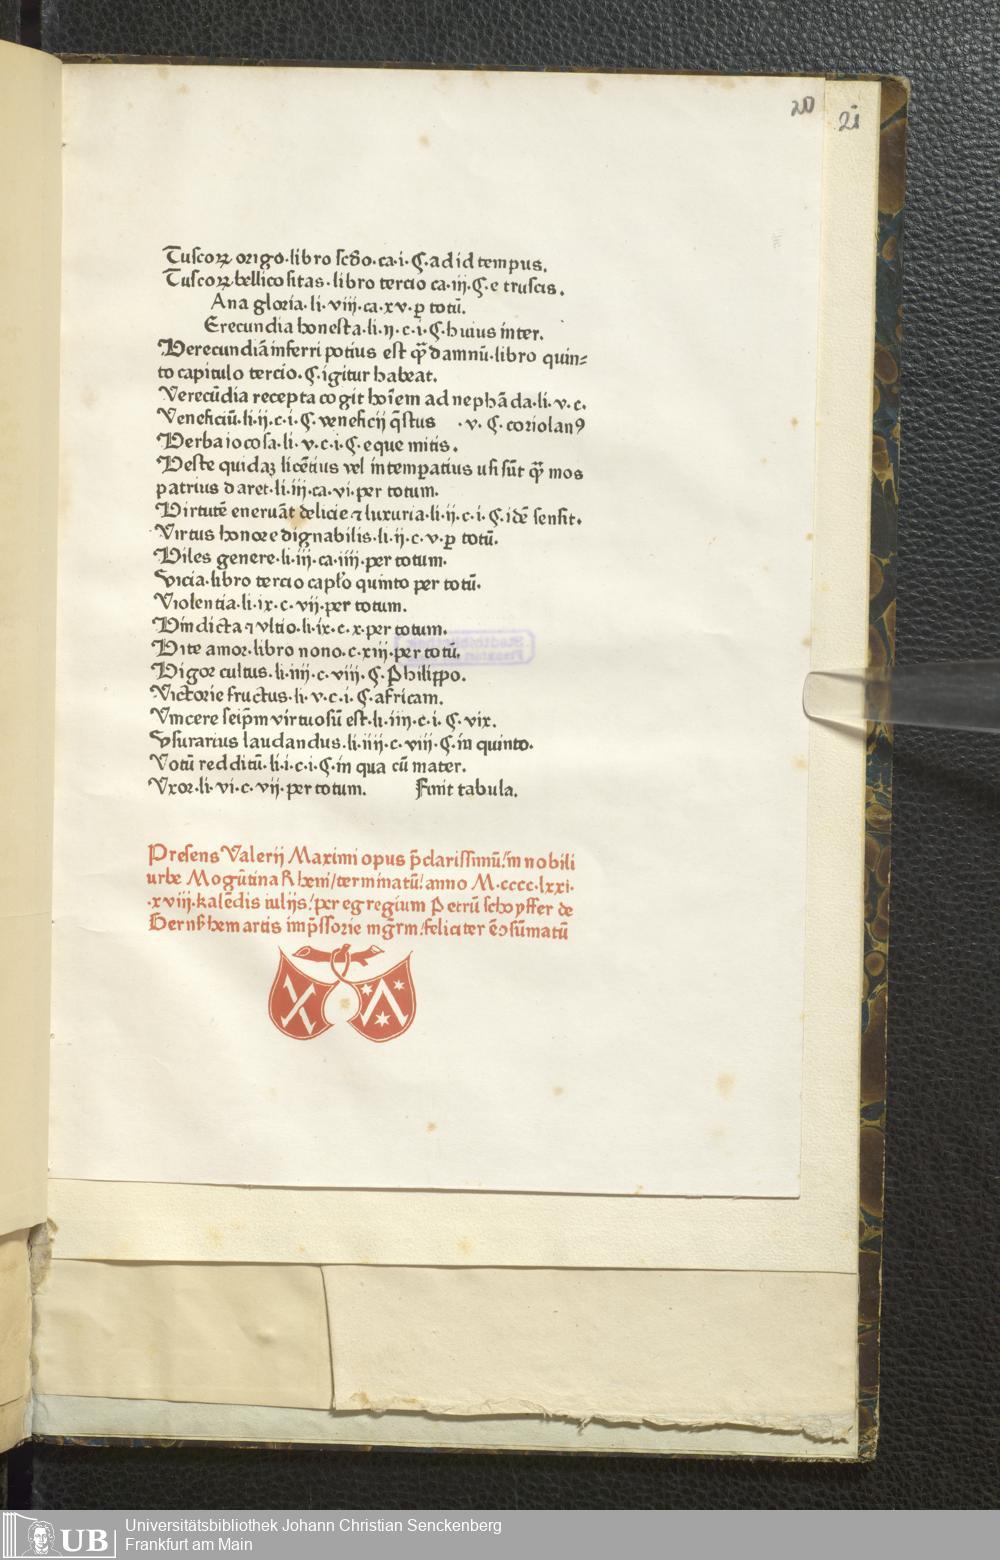 20
21
Tuscoꝝ origo.libro scđo.ca.i.ꝯ.ad id tempus.
Tuscoꝝ bellicositas.libro tercio ca.iij.ꝯ.e truscis.
Ana gloria.li.viij.ca.xv.ꝑ totū.
Erecundia honesta.li.ij.c.i.ꝯ.huius inter.
Verecundiā inferri potius est qͣꝫ damnū.libro quin⸗
to capitulo tercio.ꝯ.igitur habeat.
Verecūdia recepta cogit hoīem ad nephāda.li.v.c.
Veneficiū.li.ij.c.i.ꝯ.veneficij q̄stus .v.ꝯ.coriolanꝰ
Verba iocosa.li.v.c.i.ꝯ.eque mitis.
Veste quidaꝫ licētius vel intemꝑatius usi sūt qͣꝫ mos
patrius daret.li.iij.ca.vi.per totum.
Virtutē eneruāt delicie ⁊ luxuria.li.ij.c.i.ꝯ.idē sensit.
Virtus honore dignabilis.li.ij.c.v.ꝑ totū.
Viles genere.li.iij.ca.iiij.per totum.
Vicia.libro tercio capło quinto per totū.
Violentia.li.ix.c.vij.per totum.
Vindicta ⁊ vltio.li.ix.c.x.per totum.
Vite amor.libro nono.c.xiij.per totū.
Vigor cultus.li.iiij.c.viij.ꝯ.Philiꝑpo.
Victorie fructus.li.v.c.i.ꝯ.africam.
Vincere seip̄m virtuosū est.li.iiij.c.i.ꝯ.vix.
Vsurarius laudandus.li.iiij.c.viij.ꝯ.in quinto.
Votū redditū.li.i.c.i.ꝯ.in qua cū mater.
Vxor.li.vi.c.vij.per totum. Finit tabula.
Presens Valerij Maximi opus p̄clarissimū/in nobili
urbe Mogūtina Rheni/terminatū/anno M.cccc.lxxi.
.xviij.kalēdis iulijs/per egregium Petrū schoyffer de
Gernsshem artis imp̄ssorie mgr̄m/feliciter ē ↄsūmatū
UB
Universitätsbibliothek Johann Christian Senckenberg
Frankfurt am Main